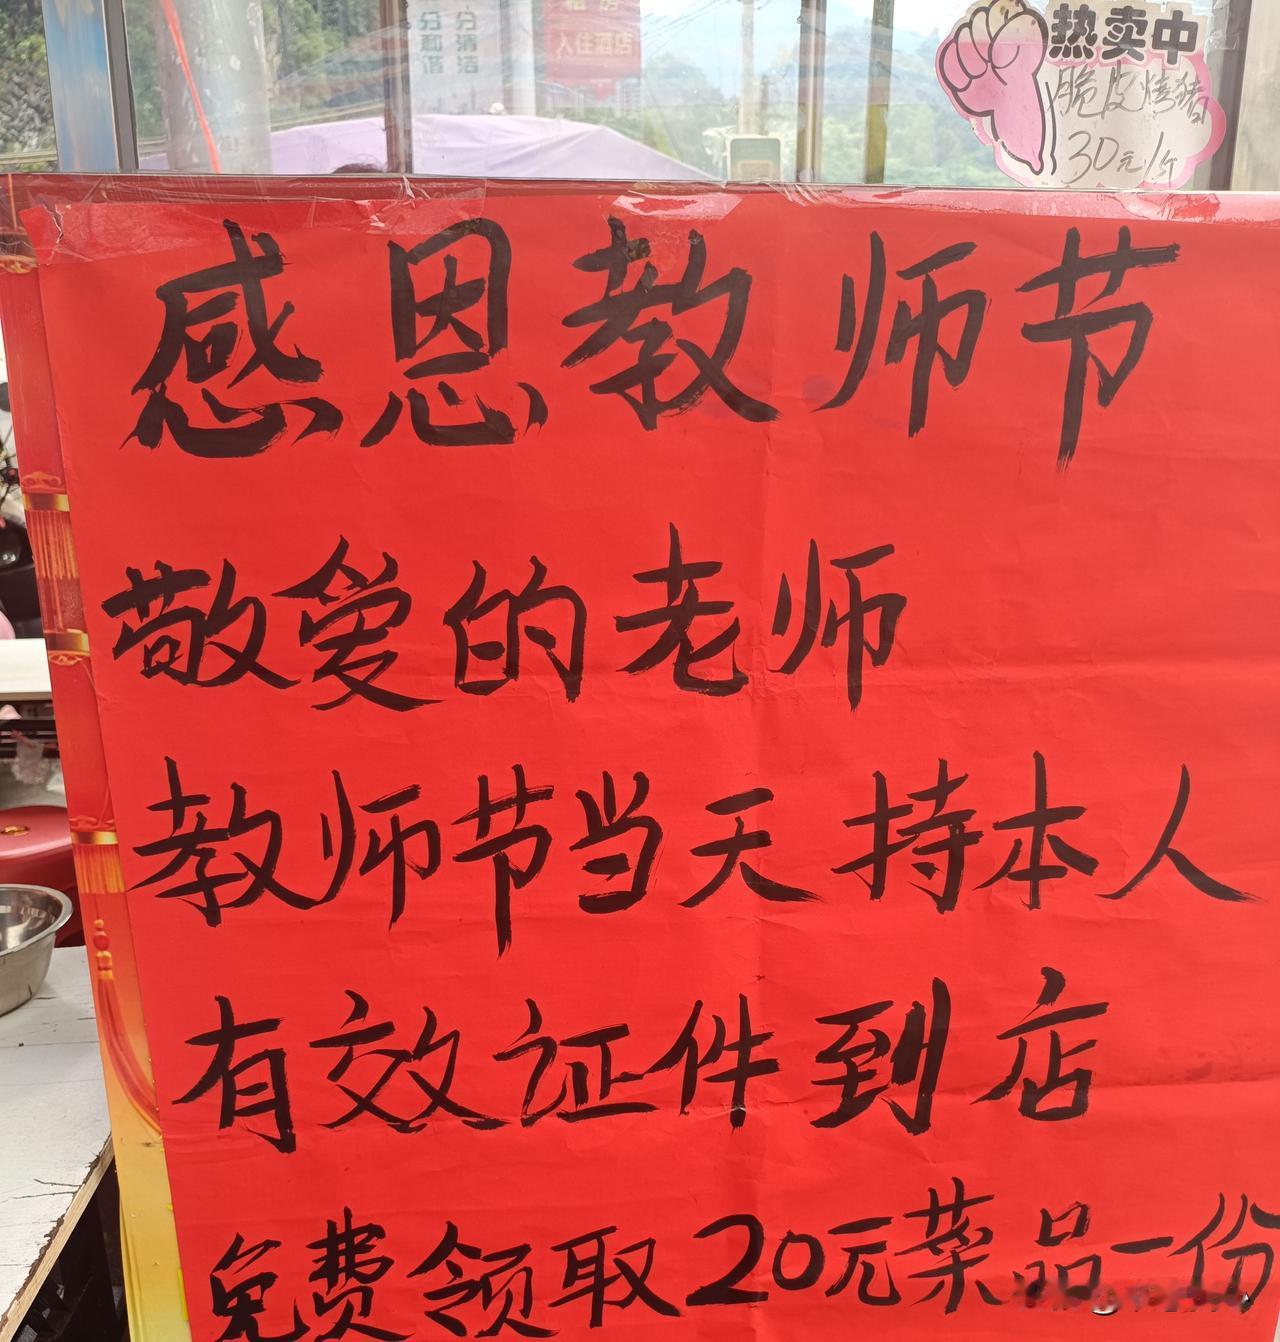 一分清洁
一分和谐
租房
入住酒店
热卖中
脆皮烤猪
30元/斤
感恩教师节
敬爱的老师
教师节当天 持本人
有效证件到店
免费领取20元菜品一份